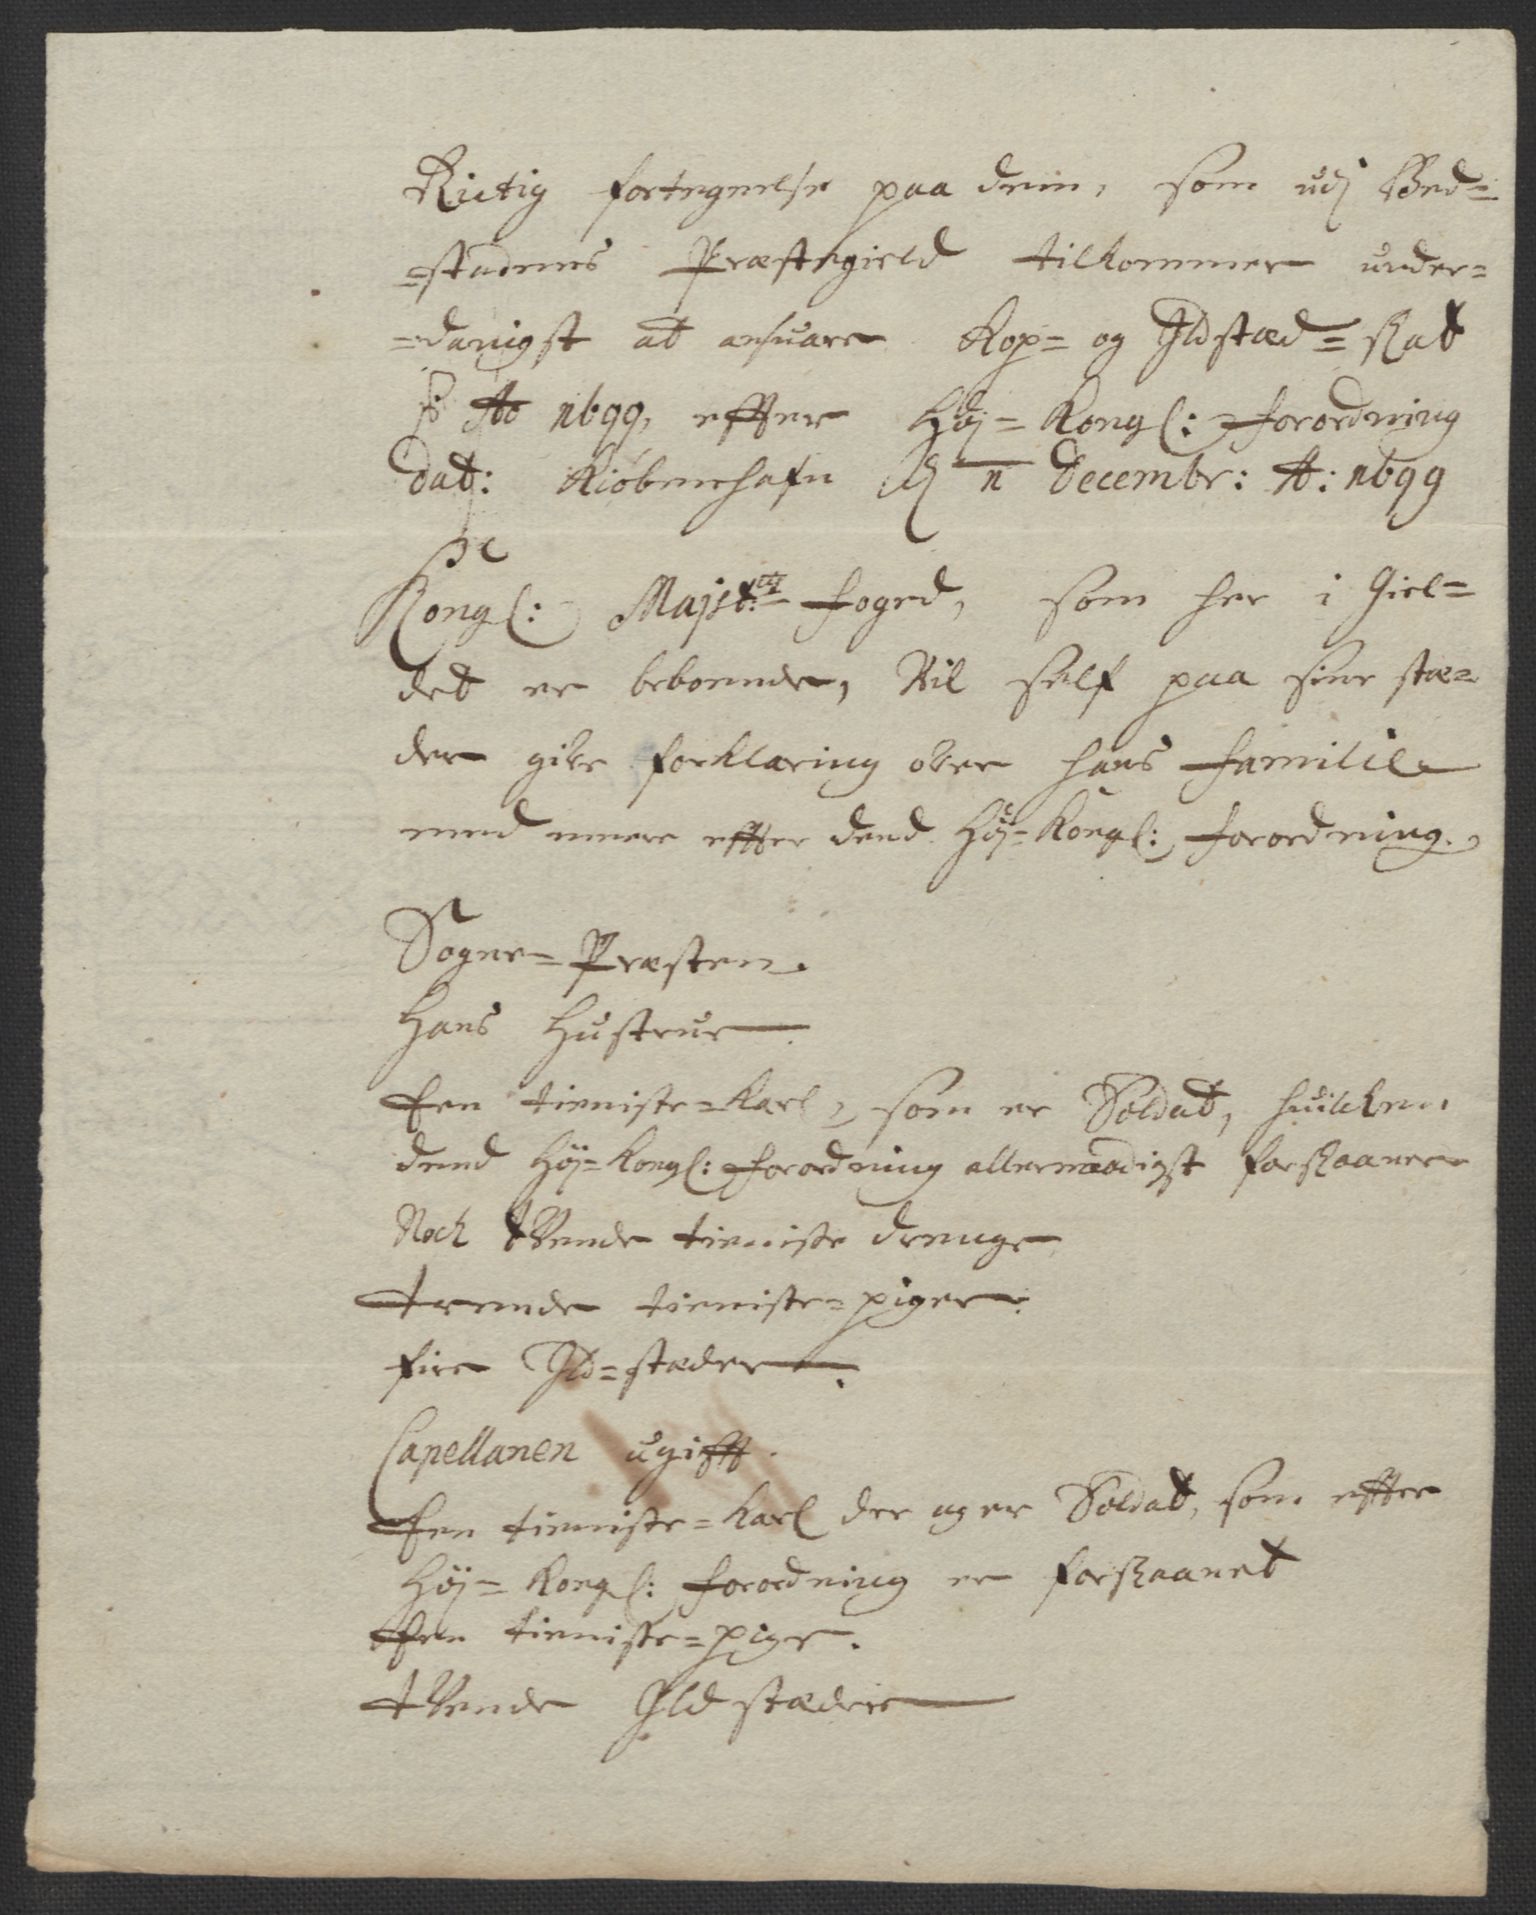 Rictig fortegnelse paa dem, som udj Bed=
=stadens Præstegield tilkommer under=
=danigst at ansuare Kop= og Ildstæd=skat
p Ao 1699, effter Høj=Kongl: forordning
dat: Kiøbenhafn d 11 Decembr: A: 1699
Kongl: Majsts foged, som her i Giel=
det er boende, Vil self paa sine stæ=
der gifve forklaring ofver hans familie
med mere effter dend Høj=Kongl: forordning.
Sogne=Præsten.
Hans Hustrue
Een tieniste=karl, som er Soldat, huilken
dend Høj=Kongl: forordning allernaadigst forskaaner
Noch tVende tieniste drenge
trende tieniste=piger.
fire Ild=stæder.
Capellanen ugifft.
Een tieniste=karl der og er Soldat, som effter
Høj=Kongl: forordning er forskaanet
Een tieniste=pige.
tVende Ildstæder